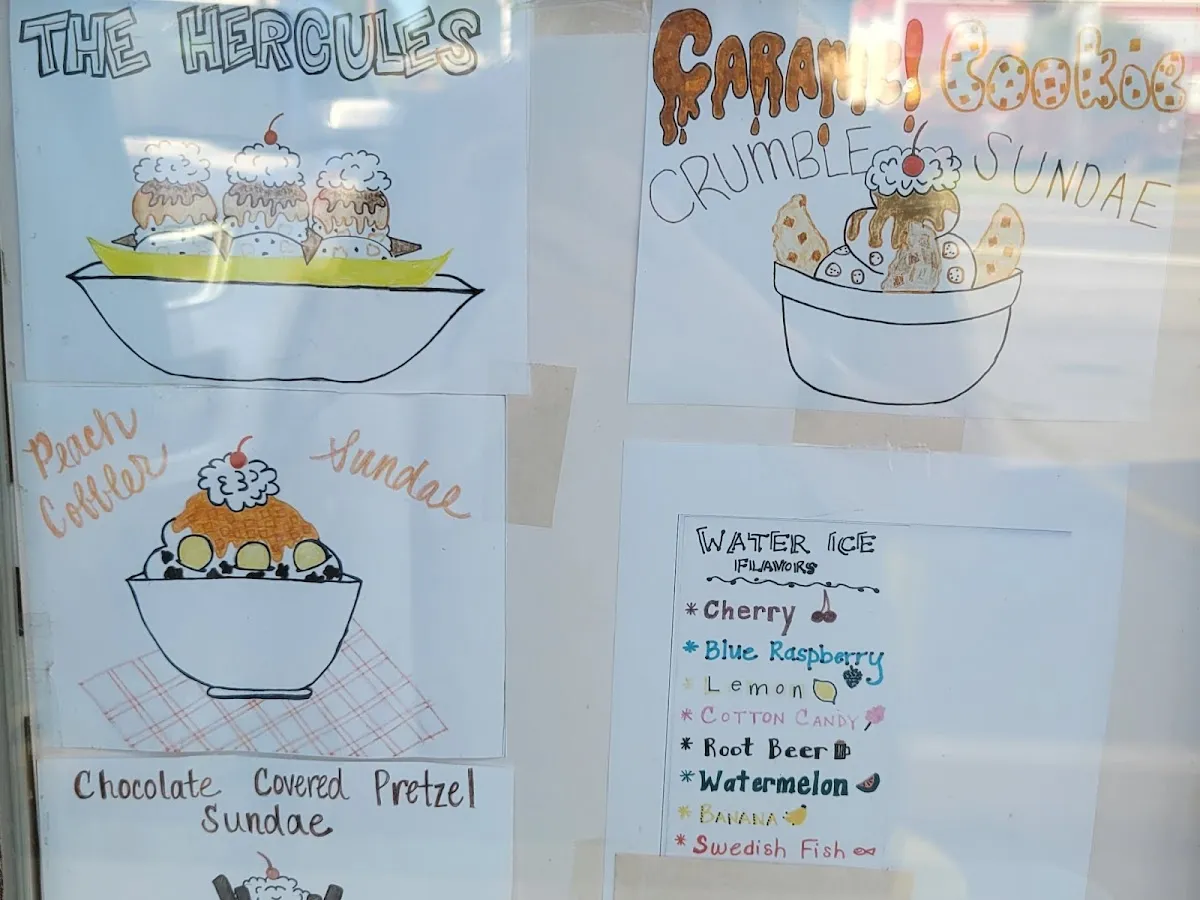 THE HERCULES
CARAMEL Cookie
CRUMBLE SUNDAE
Peach Sundae
Cobbler
Chocolate Covered Pretzel
Sundae
WATER ICE
FLAVORS
* Cherry
* Blue Raspberry
* Lemon
* COTTON CANDY
* Root Beer
* Watermelon
* BANANA
* Swedish Fish